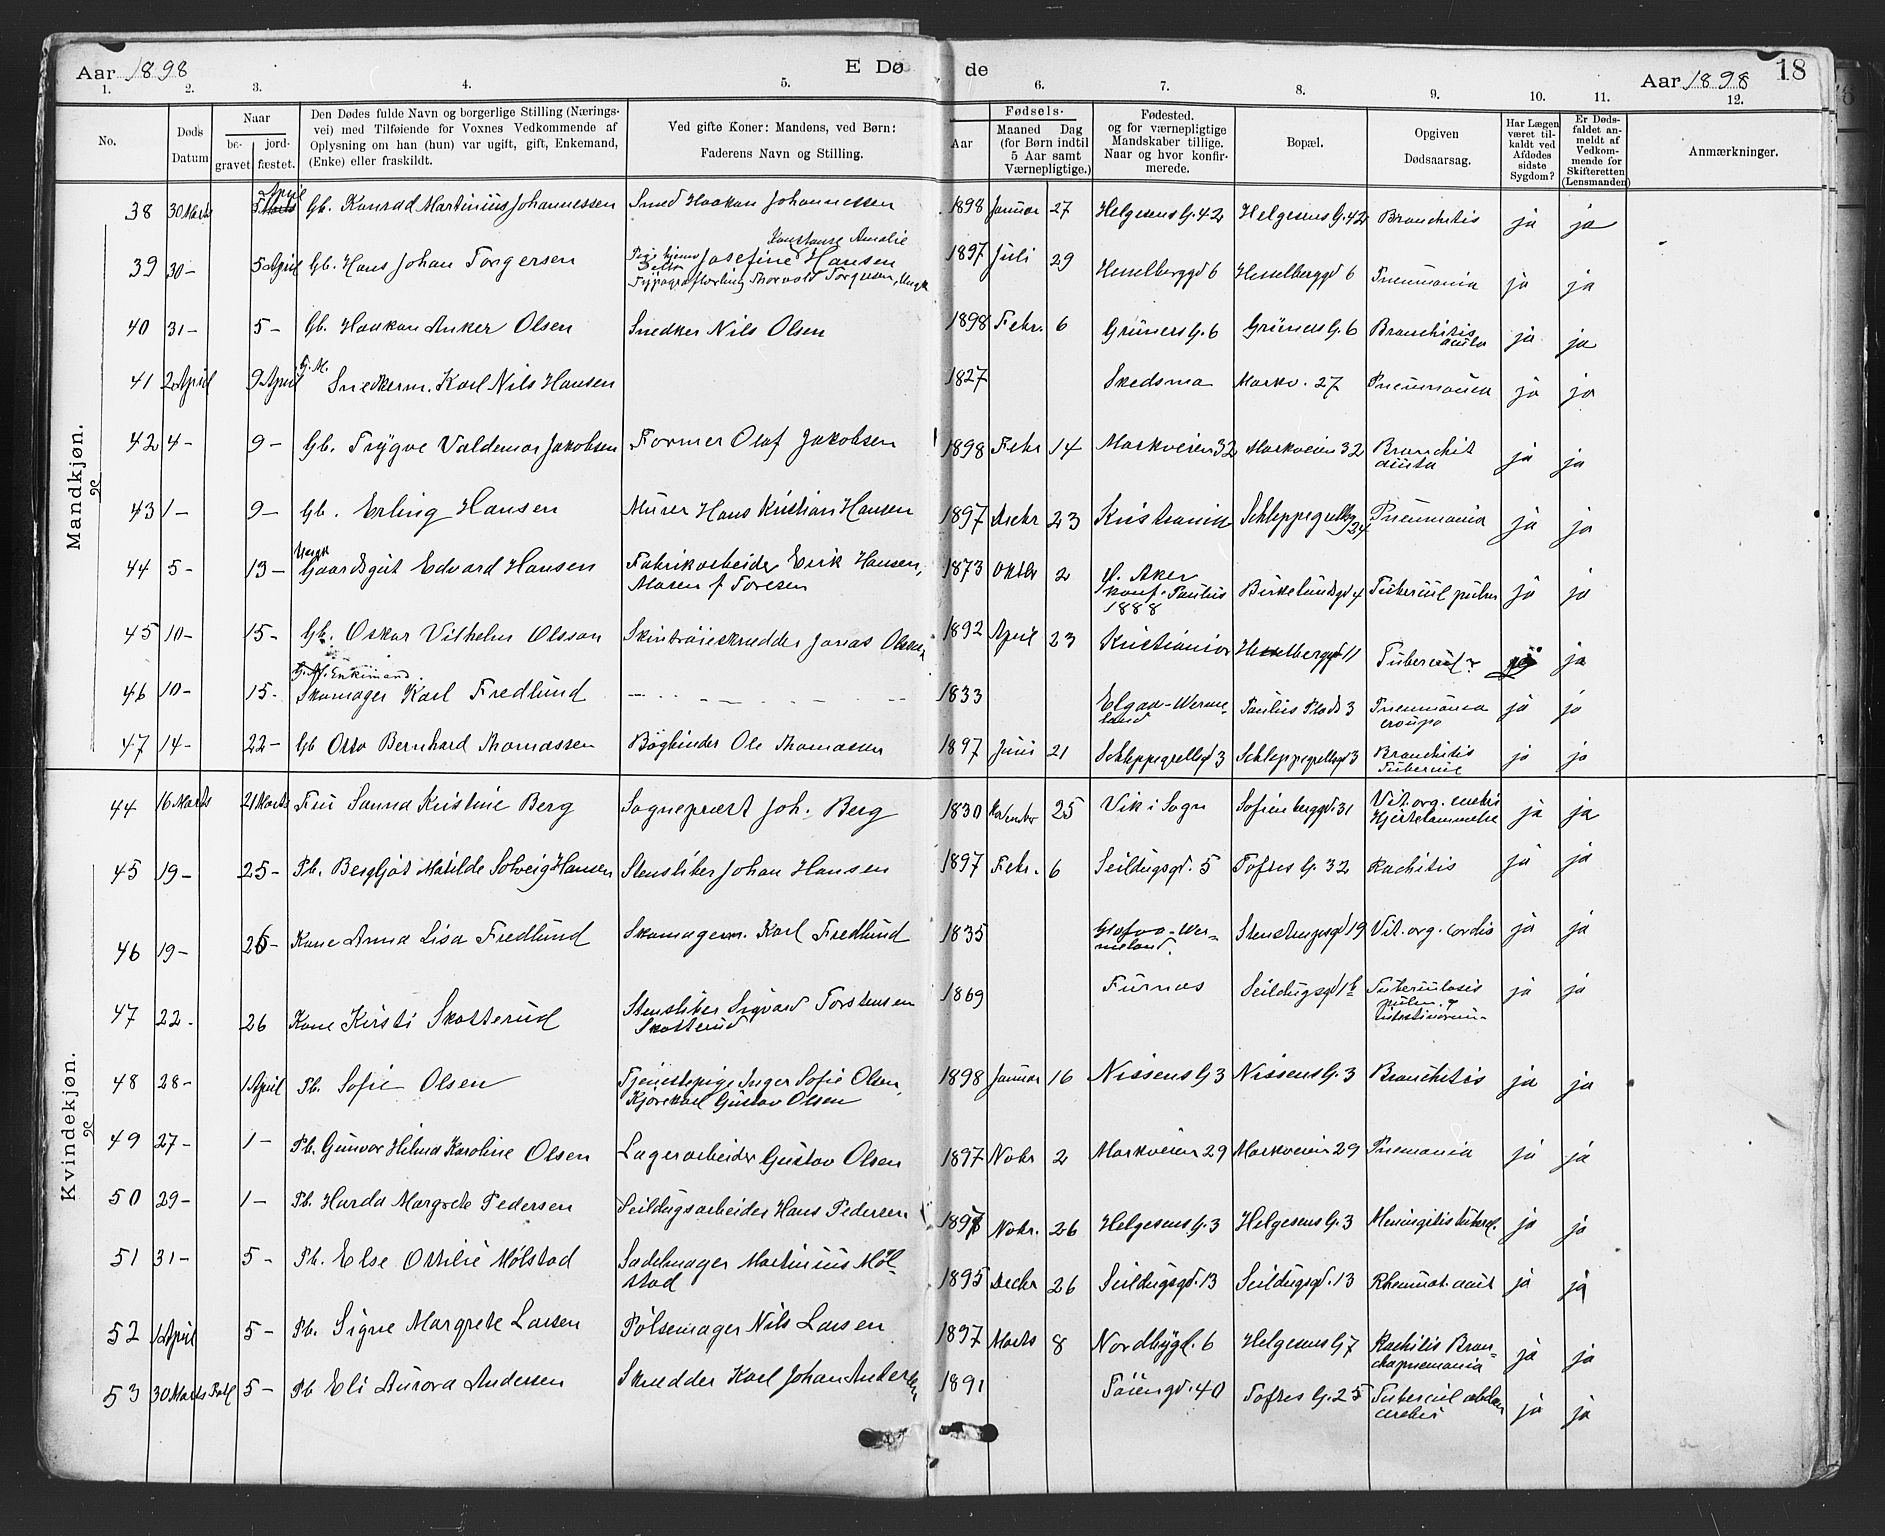 Aar 1898 E Døde Aar 1898 18
1. 2. 3. 4. 5. 6. 7. 8. 9. 10. 11. 12.
No. Døds Datum Naar begravet jordfæstet. Den Dødes fulde Navn og borgerlige Stilling (Næringsvei) med Tilføiende for Voxnes Vedkommende af Oplysning om han (hun) var ugift, gift, Enkemand, (Enke) eller fraskildt. Ved gifte Koner: Mandens, ved Børn: Faderens Navn og Stilling. Fødsels- Aar Maaned Dag (for Børn indtil 5 Aar samt Værnepligtige.) Fødested. og for værnepligtige Mandskaber tillige. Naar og hvor konfirmerede. Bopæl. Opgiven Dødsaarsag. Har Lægen været tilkaldt ved Afdødes sidste Sygdom? Er Dødsfaldet anmeldt af Vedkommende for Skifteretten (Lensmanden) Anmærkninger.
Mandkjøn.
38 30 Marts April Gb. Konrad Martinius Johannessen Smed Haakon Johannessen 1898 Januar 27 Helgesens G. 42 Helgesens G. 42 Bronchitis ja ja
39 30 - 5 April Gb. Hans Johan Torgersen Josefine Konstanse Amalie Hansen 1897 Juli 29 Hesselberggd 6 Hesselberggd 6 Pneumonia ja ja
40 31 - 5 - Gb. Haakon Anker Olsen Snedker Nils Olsen 1898 Febr. 6 Grüners G. 6 Grüners G. 6 Bronchitis acuta ja ja
41 2 April 9 April G.M. Snedkerm. Karl Nils Hansen 1827 Skedsmo Markv. 27 Pneumonia ja ja
42 4 - 9 - Gb. Trygve Valdemar Jakobsen Former Olaf Jakobsen 1898 Febr 14 Markveien 32 Markveien 32 Bronchit acuta ja ja
43 1 - 9 - Gb. Erling Hansen Murer Hans Kristian Hansen 1897 Decbr 23 Kristiania Schleppegrellsg 24 Pneumonia ja ja
44 5 - 13 - Ungk Gaardsgut Edvard Hansen Fabrikarbeider Erik Hansen, Maren f Toresen 1873 Oktbr 2 V. Aker Konf. Paulus 1888 Birkelundsgd 4 Tubercul pulm ja ja
45 10 - 15 - Gb. Oskar Vilhelm Olsson Skintrøieskrædder Jonas Olsson 1892 April 23 Kristiania Hesselberggd 11 Tubercul ja
46 10 - 15 - G.M. Enkemand. Skomager Karl Fredlund 1833 Elgaa - Wermeland Paulus Plads 3 Pneumonia croupo ja ja
47 14 - 22 - Gb Otto Bernhard Thomassen Bogbinder Ole Thomassen 1897 Juni 21 Schleppegrellsgd 3 Schleppegrellsgd 3 Bronchitis Tubercul ja ja
Kvindekjøn.
44 16 Marts 21 Marts Fru Sanna Kristine Berg Sogneprest Joh. Berg 1830 November 25 Vik i Sogn Sofienberggd. 31 Vit. org. cordis Hjertelammelse ja ja
45 19 - 25 - Pb. Bergljot Matilde Solveig Hansen Stensliber Johan Hansen 1897 Febr. 6 Seildugsgd. 5 Toftes G. 32 Rachitis ja ja
46 19 - 26 - Kone Anna Lisa Fredlund Skomagerm. Karl Fredlund 1835 Glafva - Wermeland. Stenstrupsgd 19 Vit. org. cordis ja ja
47 22 - 26 Kone Kirsti Skotterud Stensliber Sigvard Torstensen Skotterud 1869 Furnæs Seildugsgd 16 Tuberculosis pulm. & intestinorum ja ja
48 28 - 1 April Pb. Sofie Olsen Tjenestepige Inger Sofie Olsen, Kjørekarl Gustav Olsen 1898 Januar 16 Nissens G 3 Nissens G. 3 Bronchitis ja ja
49 27 - 1 - Pb. Gunvor Hilma Karoline Olsen Lagerarbeider Gustav Olsen 1897 Novbr 2 Markveien 29 Markveien 29 Pnemonia ja ja
50 29 - 1 - Pb. Harda Margrete Pedersen Seildugsarbeider Hans Pedersen 1897 Novbr. 26 Helgesens G. 3 Helgesens G. 3 Meningitis tubercl. ja ja
51 31 - 5 - Pb. Else Ottilie Mølstad Sadelmager Martinius Mølstad 1895 Decbr 26 Seildugsgd. 13 Seildugsgd. 13 Rheumat. acut ja ja
52 1 April 5 - Pb. Signe Margrete Larsen Pølsemager Nils Larsen 1897 Marts 8 Nordbygd. 6 Helgesens G 7 Rachitis Bronchopnemonia ja ja
53 30 Marts 5 - Pb Eli Aurora Andersen Skrædder Karl Johan Andersen 1891 Tøiengd. 40 Toftes G. 25 Tubercul ja ja